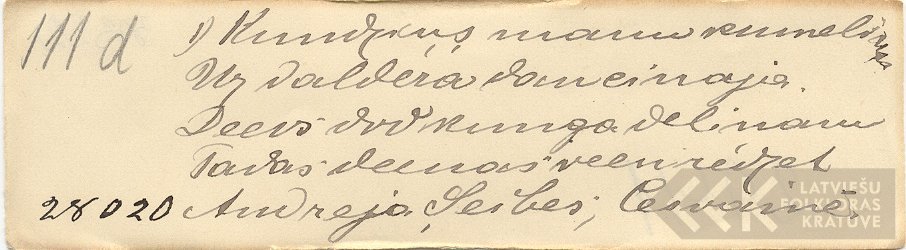 111 d
1) Kundziņš manu kumeliņu
Uz daldēra dancinaja.
Deevs dod kunga delinam
Tadas deenas veen rédzet
28020 Andreja Seibes, Cesvainē,
LATVIEŠU
FOLKLORAS
KRĀTUVE